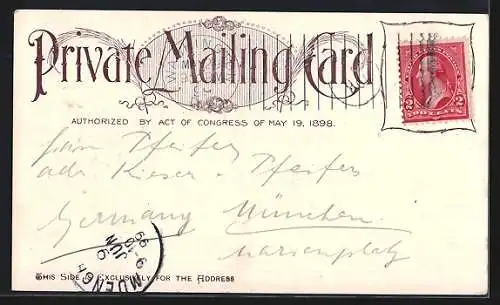 Private Mailing Card
AUTHORIZED BY ACT OF CONGRESS OF MAY 19, 1898.
Pfeifer
adr. Kieser & Pfeifer
Germany München
Marienplatz
THIS SIDE IS EXCLUSIVELY FOR THE ADDRESS
MUENCHEN